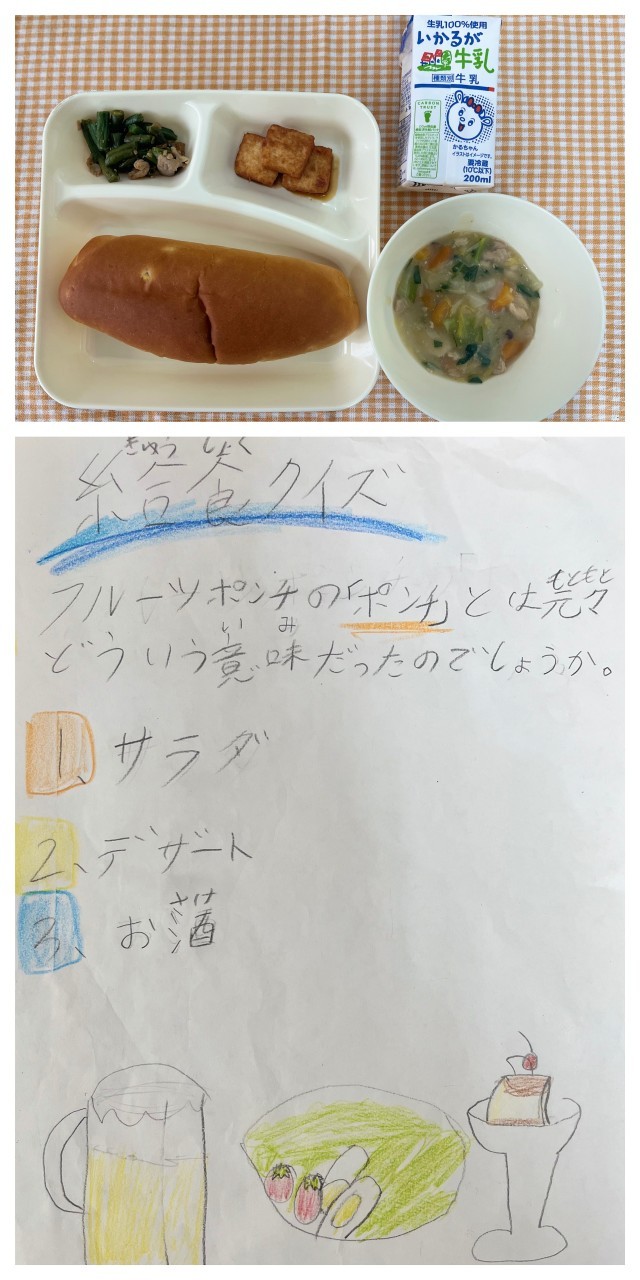 生乳100%使用
いかるが
牛乳
種類別 牛乳
CARBON TRUST
かるちゃん
イラストはイメージです。
要冷蔵
(10℃以下)
200ml
きゅうしょく
給食クイズ
フルーツポンチの「ポンチ」とは元々
もともと
いみ
どういう意味だったのでしょうか。
1、サラダ
2、デザート
さけ
3、お酒